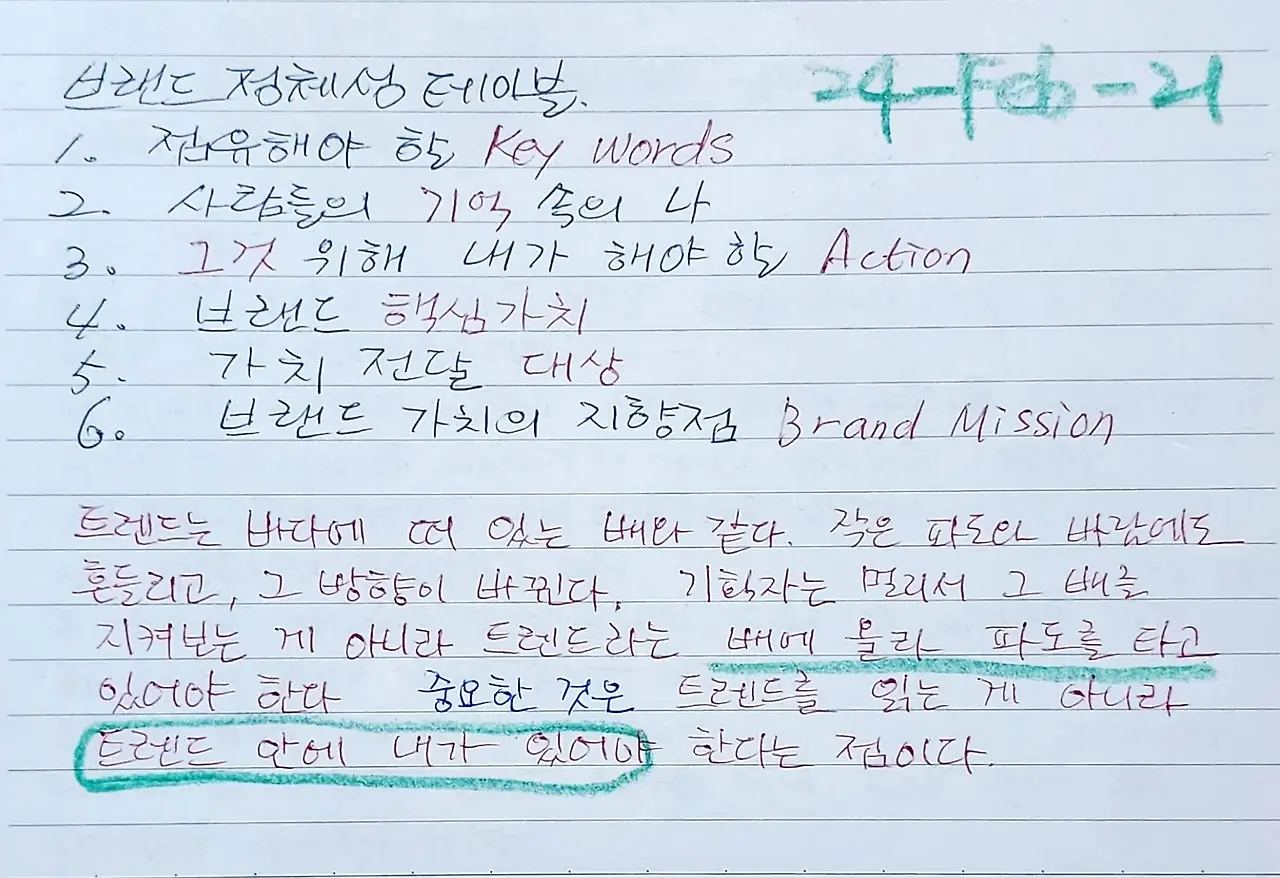 브랜드 정체성 테이블.
24-Feb-21
1. 점유해야 할 Key words
2. 사람들의 기억 속의 나
3. 그것 위해 내가 해야 할 Action
4. 브랜드 핵심가치
5. 가치 전달 대상
6. 브랜드 가치의 지향점 Brand Mission
트렌드는 바다에 떠 있는 배와 같다. 작은 파도와 바람에도
흔들리고, 그 방향이 바뀐다. 기획자는 멀리서 그 배를
지켜보는 게 아니라 트렌드라는 배에 올라 파도를 타고
있어야 한다 중요한 것은 트렌드를 읽는 게 아니라
트렌드 안에 내가 있어야 한다는 점이다.